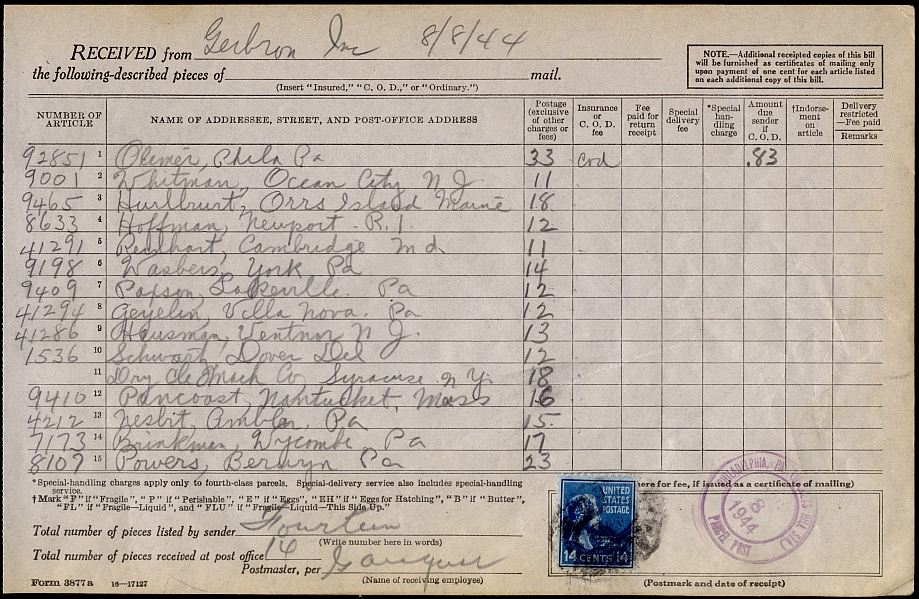 RECEIVED from Gerbron Inc 8/8/44
the following-described pieces of mail.
(Insert "Insured," "C. O. D.," or "Ordinary.")
NOTE.—Additional receipted copies of this bill
will be furnished as certificates of mailing only
upon payment of one cent for each article listed
on each additional copy of this bill.
NUMBER OF ARTICLE NAME OF ADDRESSEE, STREET, AND POST-OFFICE ADDRESS Postage (exclusive of other charges or fees) Insurance or C. O. D. fee Fee paid for return receipt Special delivery fee *Special handling charge Amount due sender if C. O. D. †Indorsement on article Delivery restricted—Fee paid Remarks
92851 1 Phila Pa 33 cod .83
9001 2 Whitman, Ocean City N J. 11
9465 3 Hurlburt, Orrs Island Maine 18
8633 4 Hoffman, Newport R. I. 12
41291 5 Reinhart, Cambridge Md 11
9198 6 York Pa 14
9409 7 Paxson, Pa 12
41294 8 Geyelin, Villa Nova. Pa 12
41286 9 Hausman, Ventnor N J. 13
1536 10 Schwartz, Dover Del 12
11 Dry Cle Mach Co, Syracuse N Y. 18
9410 12 Pancoast, Nantucket, Mass 16
4212 13 Nesbit, Ambler, Pa 15
7173 14 Brinkman, Wycombe, Pa 17
8107 15 Powers, Berwyn Pa 23
*Special-handling charges apply only to fourth-class parcels. Special-delivery service also includes special-handling
service.
†Mark "F" if "Fragile", "P" if "Perishable", "E" if "Eggs", "EH" if "Eggs for Hatching", "B" if "Butter",
"FL" if "Fragile—Liquid", and "FLU" if "Fragile—Liquid—This Side Up."
here for fee, if issued as a certificate of mailing)
Total number of pieces listed by sender Fourteen
(Write number here in words)
Total number of pieces received at post office 14
Postmaster, per
(Name of receiving employee)
Form 3877a 16—17127
UNITED
STATES
POSTAGE
14 CENTS 14
PHILADELPHIA, PA.
8
1944
PARCEL POST
(Postmark and date of receipt)